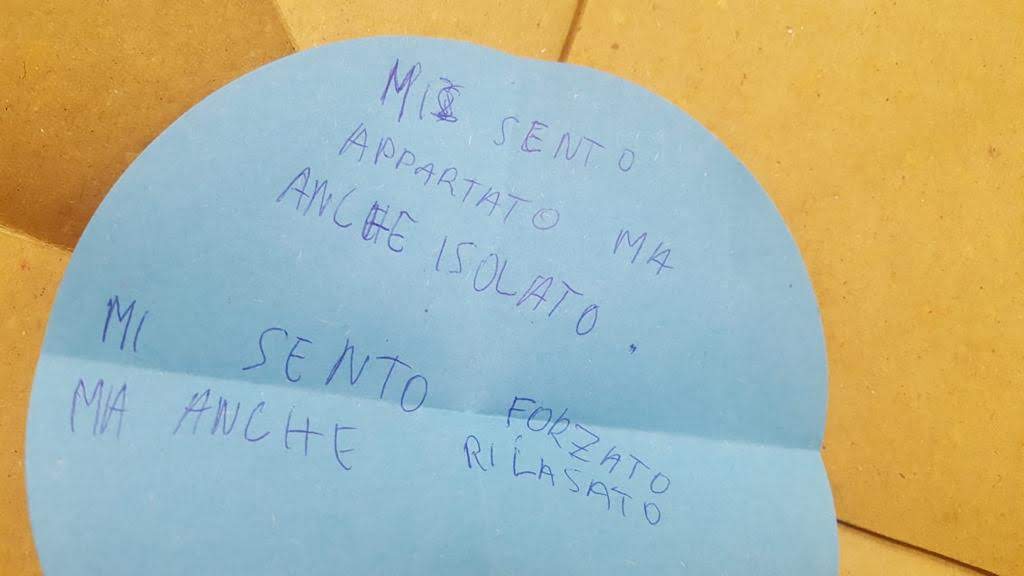 MI SENTO
APPARTATO MA
ANCHE ISOLATO.
MI SENTO FORZATO
MA ANCHE RILASATO